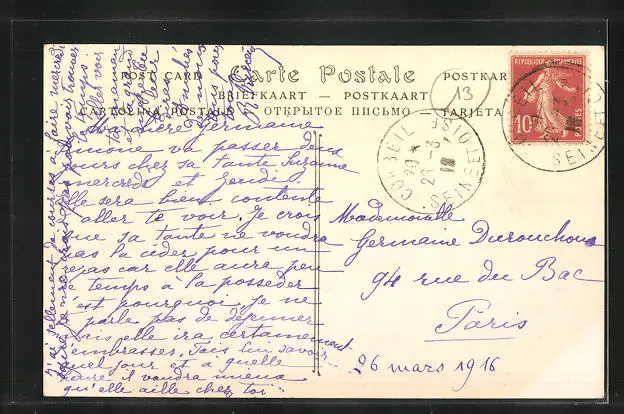 POST CARD — Carte Postale — POSTKAR
BRIEFKAART — POSTKAART
CARTOLINA POSTALE — ОТКРЫТОЕ ПИСЬМО — TARJETA
13
REPUBLIQUE FRANÇAISE
10
POSTES
CORBEIL
SEINE-ET-OISE
26 -3
Ma chère Germaine
Simone va passer deux
jours chez sa tante Suzanne
mercredi et jeudi.
Elle sera bien contente
d'aller te voir. Je crois
que sa tante ne voudra
pas la céder pour un
repas car elle aura peu
de temps à la posséder
c'est pourquoi je ne
parle pas de déjeuner
mais elle ira certainement
t'embrasser. Fais lui savoir
quel jour et à quelle
heure il voudra mieux
qu'elle aille chez toi
J'ai tellement de courses à faire mercredi
Mademoiselle
Germaine Durouchoux
94 rue du Bac
Paris
26 mars 1916